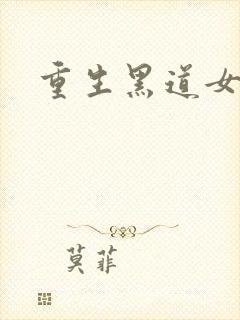 重生黑道女
莫菲